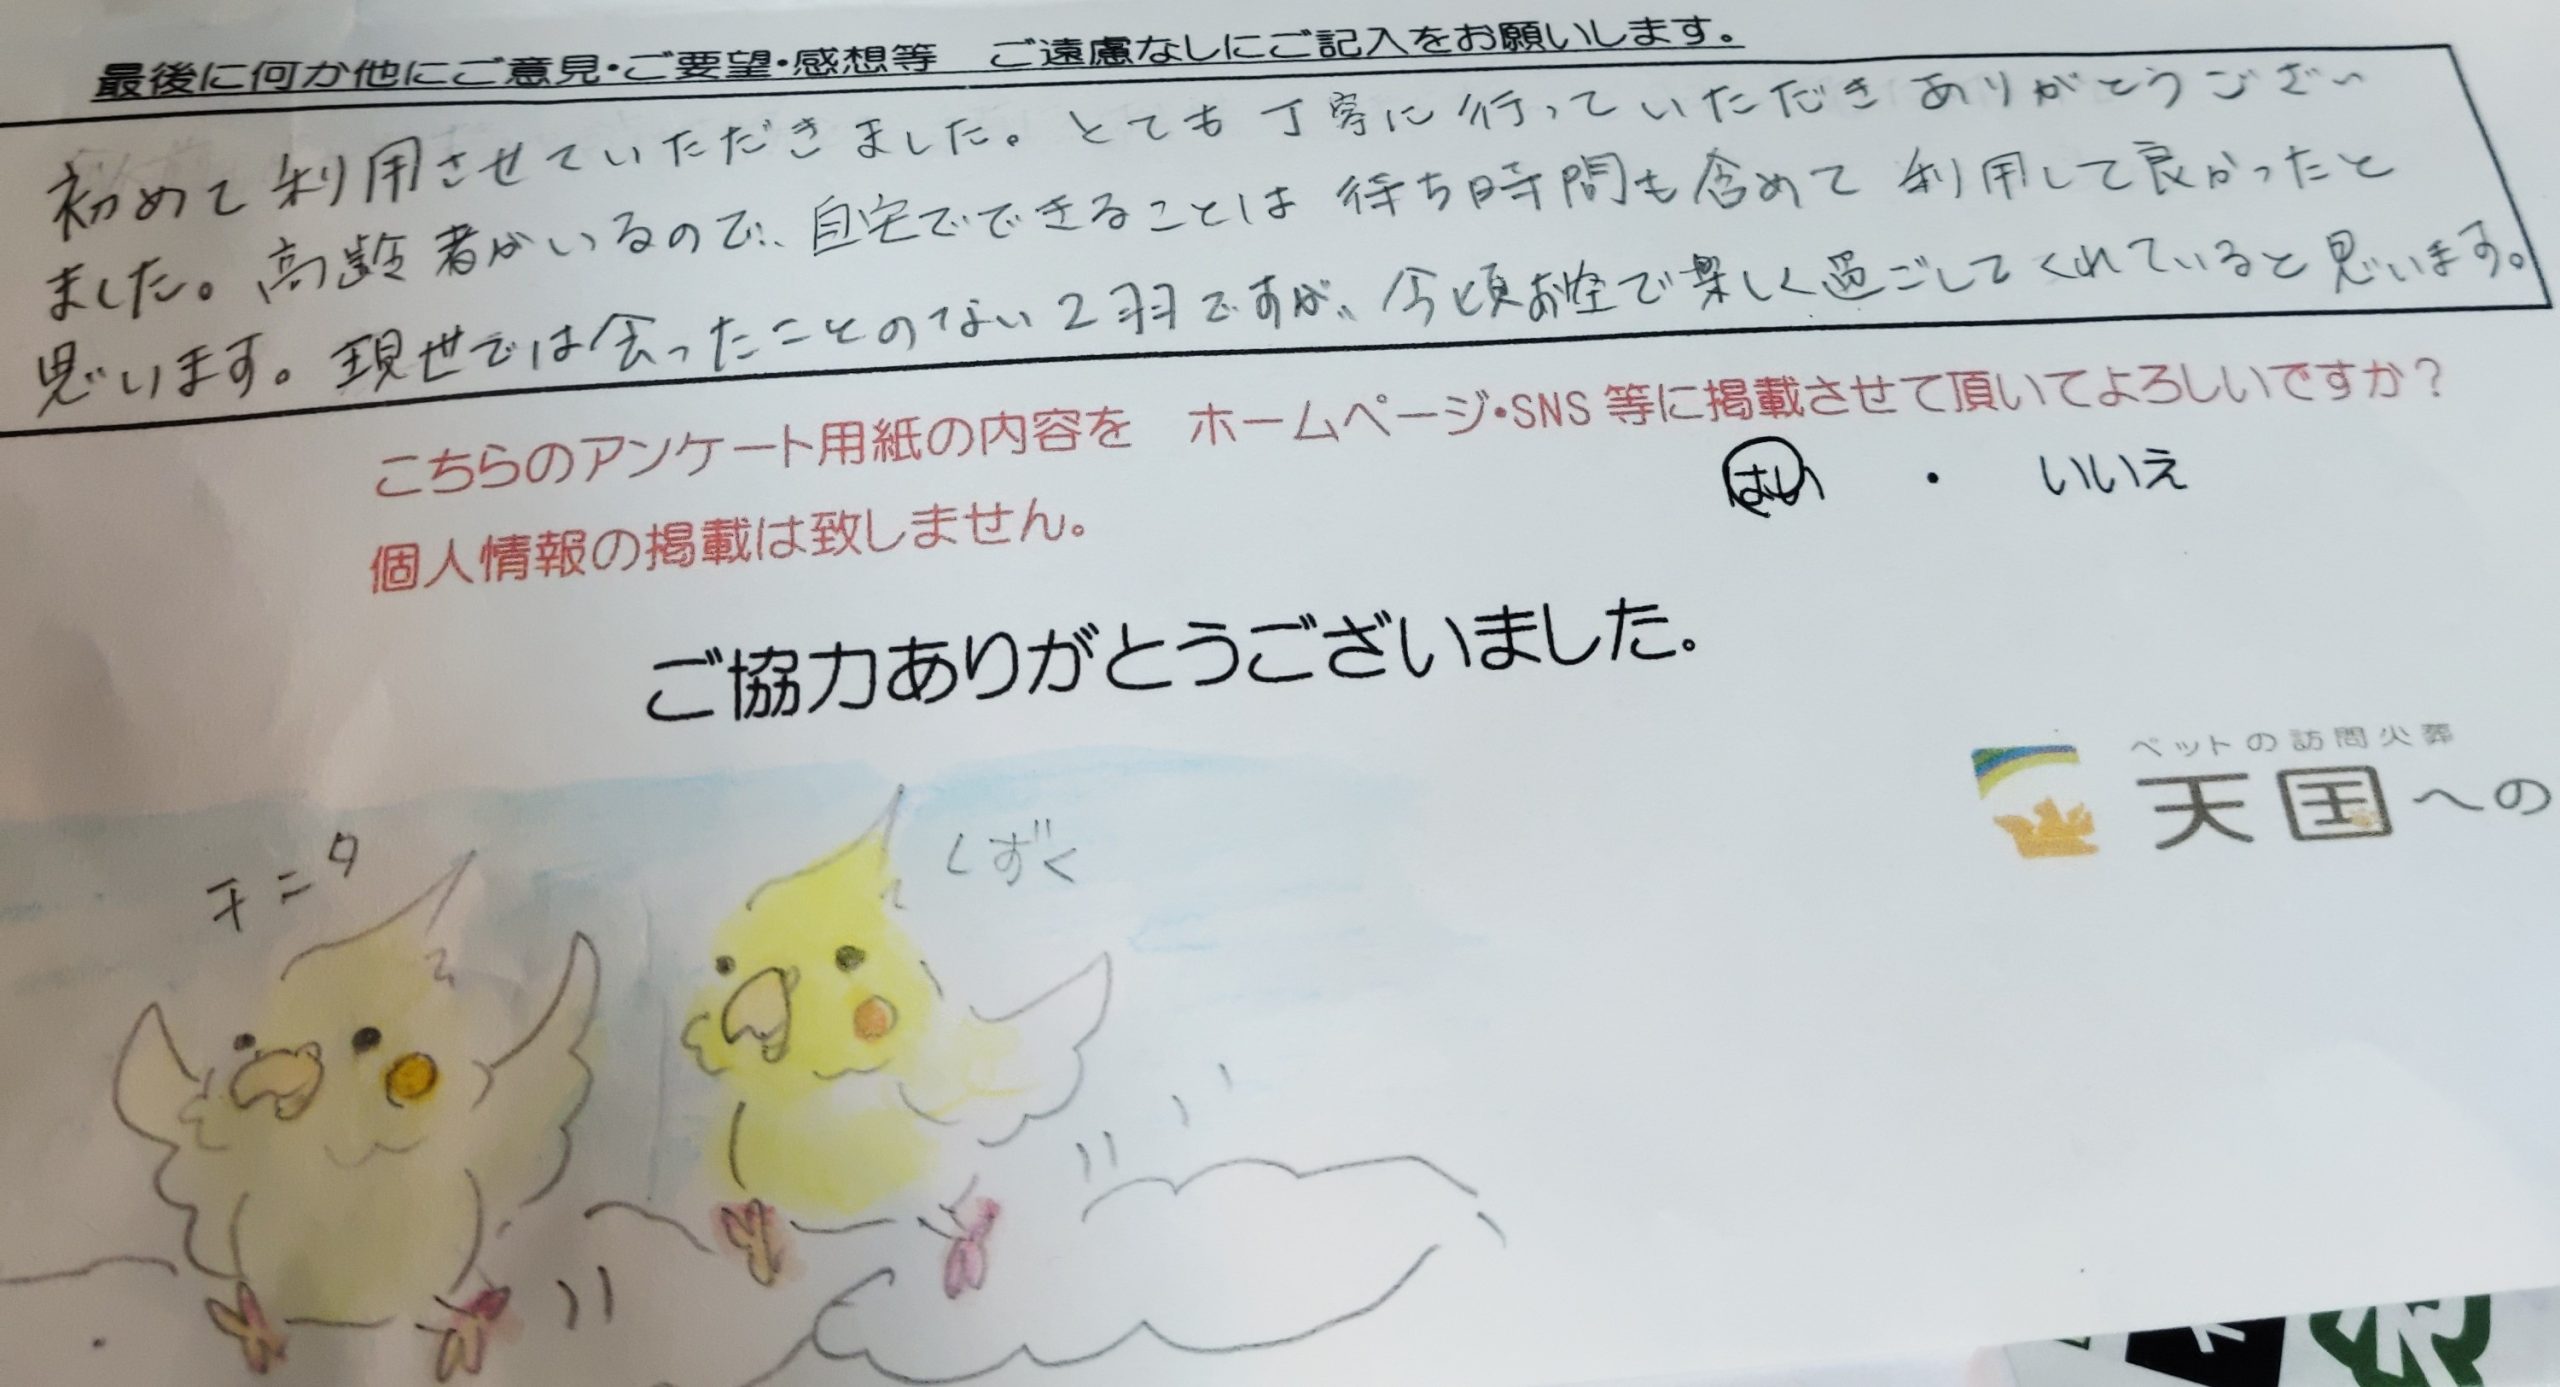 最後に何か他にご意見・ご要望・感想等　ご遠慮なしにご記入をお願いします。
初めて利用させていただきました。とても丁寧に行っていただきありがとうござい
ました。高齢者がいるので、自宅でできることは待ち時間も含めて利用して良かったと
思います。現世では会ったことのない2羽ですが、今頃お空で楽しく過ごしてくれていると思います。
こちらのアンケート用紙の内容を　ホームページ・SNS等に掲載させて頂いてよろしいですか？
はい　・　いいえ
個人情報の掲載は致しません。
ご協力ありがとうございました。
ペットの訪問火葬
天国への
チニタ
しずく